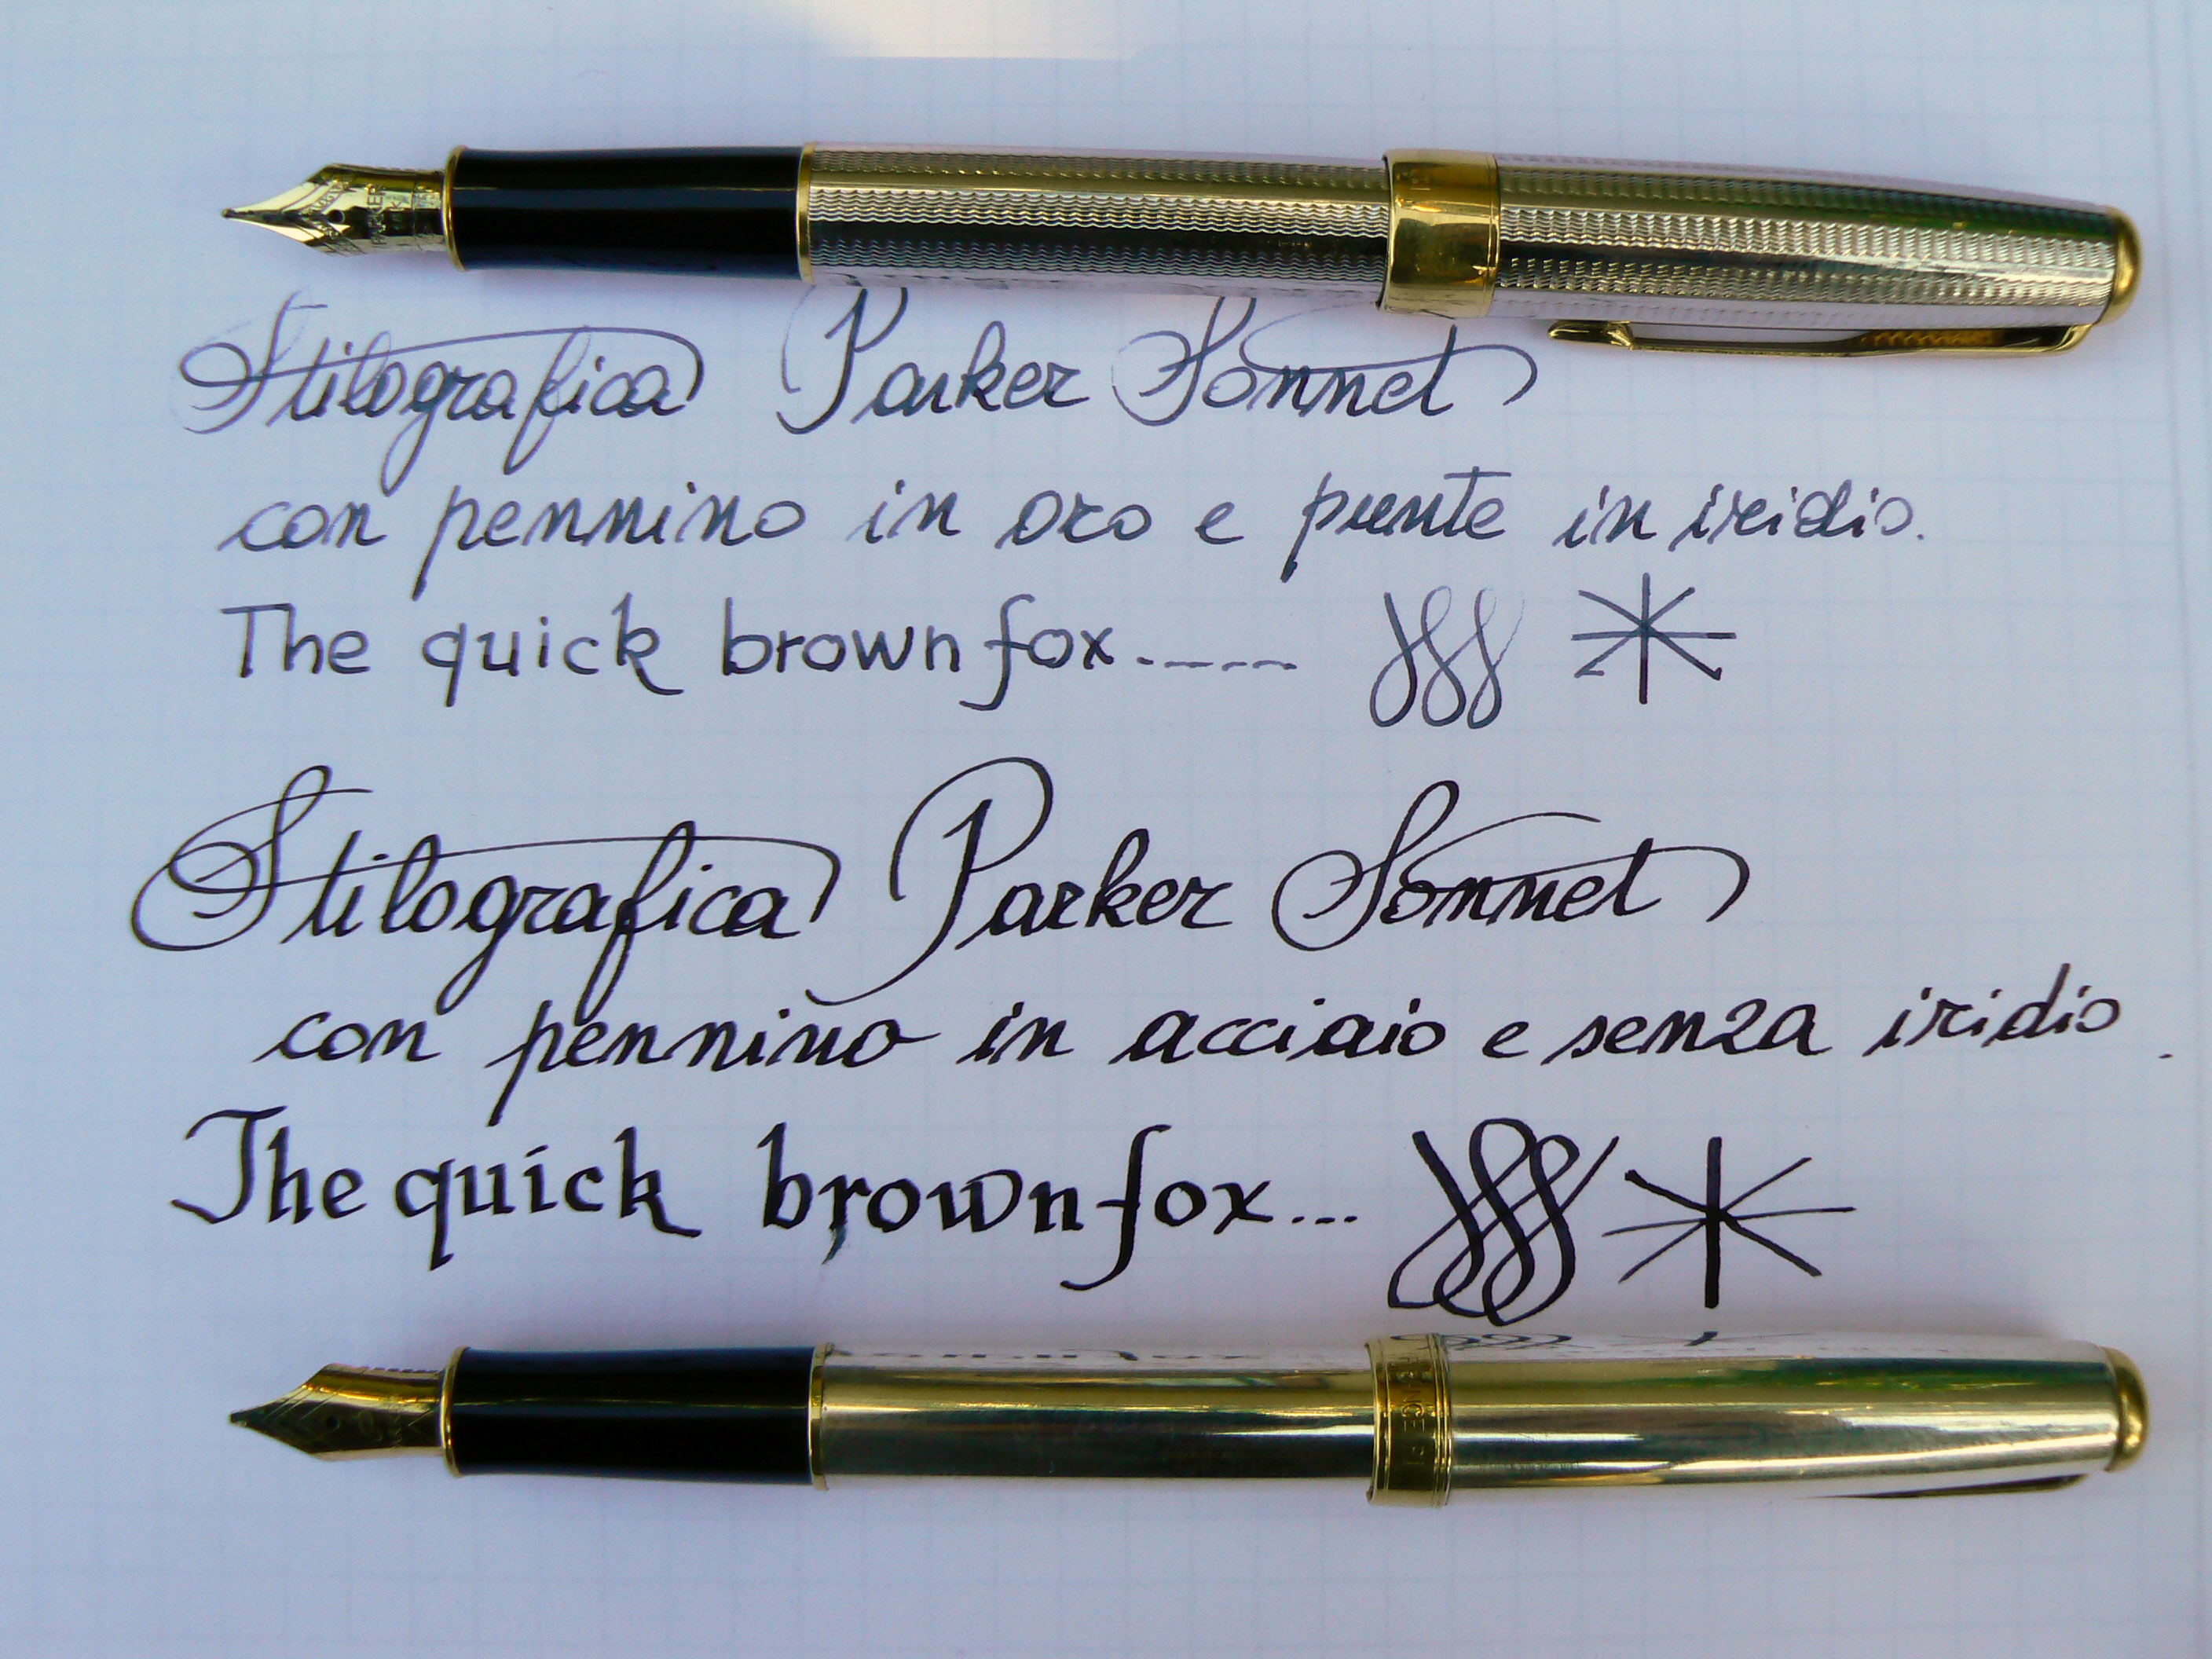 PARKER
Stilografica Parker Sonnet
con pennino in oro e punte in iridio.
The quick brown fox.----
Stilografica Parker Sonnet
con pennino in acciaio e senza iridio.
The quick brown fox...